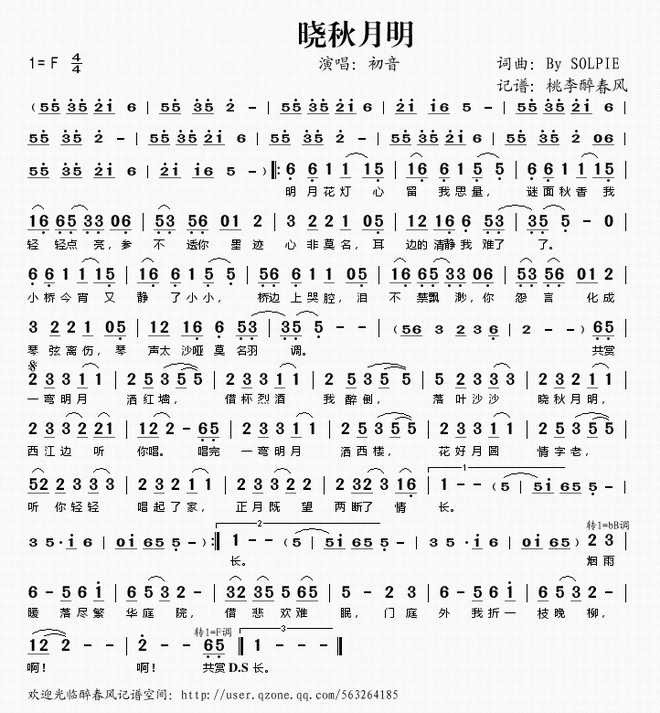 晓秋月明
1=F 4/4 演唱：初音 词曲：By SOLPIE
记谱：桃李醉春风
(55 35 2i 6 | 55 35 2 - | 55 35 2i 6 | 2i i6 5 - | 55 35 2i 6 |
55 35 2 - | 55 35 2i 6 | 55 35 2 - | 55 35 2i 6 | 55 35 2 06 |
55 35 2i 6 | 2i i6 5 - ) ‖: 6 6 1 1 15 | 16 6 1 5 5 | 6 6 1 1 15 |
明月花灯 心 留 我思量， 谜面秋香 我
16 65 33 06 | 53 56 01 2 | 3 2 2 1 05 | 12 16 6 53 | 35 5 - 0 |
轻 轻点 亮，参 不 透你 里 迹 心 非莫名，耳 边的清静我 难了 了。
6 6 1 1 15 | 16 6 1 5 5 | 56 6 1 1 05 | 16 65 33 06 | 53 56 01 2 |
小桥今宵 又 静 了小小， 桥边 上哭腔，泪 不 禁飘 渺，你 怨 言 化成
3 2 2 1 05 | 12 16 6 53 | 35 5 - - | (56 3 23 6 | 2 - - ) 65 |
琴 弦离伤，琴 声太 沙哑莫 名羽 调。 共赏
2 3 3 1 1 | 2 5 3 5 5 | 2 3 3 1 1 | 2 5 3 5 5 | 5 2 3 3 3 | 2 3 2 1 1 |
一弯明月 洒红墙， 借杯烈酒 我醉倒， 落叶沙沙 晓秋月明，
2 3 3 2 21 | 12 2 - 65 | 2 3 3 1 1 | 2 5 3 5 5 | 2 3 3 1 1 | 2 5 3 5 5 |
西江边 听 你唱。 唱完 一弯明月 洒西楼， 花好月圆 情字老，
52 2 3 3 3 | 1 2 2 3 3 | 2 3 3 2 2 | 2 32 3 16 | 1 - - (5 | 5i 65 5 - |
听 你轻轻 唱起了家， 正月既 望 两断了 情 长。
1
3 5·i 6 | 0i 65 5 - ) :‖ 1 - - (5 | 5i 65 5 - | 3 5·i 6 | 3 5·i 6 | 0i 65) 2 3 |
2 转1=bB调
长。 烟雨
6 - 5 6 i | 6 5 3 2 - | 32 35 5 65 | 5 - 2 3 | 6 - 5 6 i | 6 5 3 2 - |
暖 落尽繁 华庭 院， 借 悲 欢难 眠，门庭 外 我折一 枝晚 柳，
转1=F调 3
12 2 - - | 2 - - 65 ‖ 1 - - - ‖
啊！ 啊！ 共赏 D.S 长。
欢迎光临醉春风记谱空间：http://user.qzone.qq.com/563264185